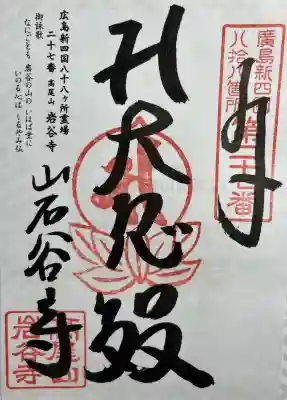 廣島新四
八拾八箇所
第二十七番
大悲殿
広島新四国八十八ヶ所霊場
二十七番 高尾山 岩谷寺
御詠歌
なにごとも 岩谷の山の いはば堂に
いのる心ば しるやみ仏
岩谷寺
高尾山
岩谷寺